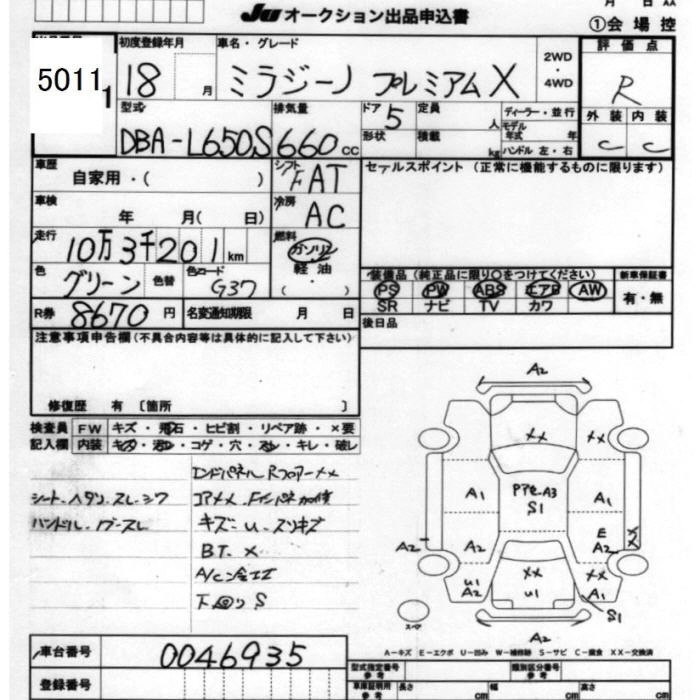 JU オークション出品申込書
月 日 AA
①会場控
5011
1
初度登録年月
18 月
車名・グレード
ミラジーノ プレミアムX
2WD
・
4WD
評価点
R
型式
DBA-L650S
排気量
660 cc
ドア
5
定員
人
ディーラー・並行
形状
積載
kg
モデル年式 年
ハンドル 左・右
外装 内装
C C
車歴
自家用・( )
シフト
FAT
セールスポイント (正常に機能するものに限ります)
車検
年 月( 日)
冷房
AC
走行
10万3千201km
燃料
ガソリン
軽油
( ・ )
色
グリーン
色替
色コード
G37
装備品(純正品に限り○をつけてください)
新車保証書
PS PW ABS エアB AW
SR ナビ TV カワ
有・無
R券
8670円
名変通知期限 月 日
後日品
注意事項申告欄(不具合内容等は具体的に記入して下さい)
修復歴 有〔箇所 〕
検査員 FW キズ・飛石・ヒビ割・リペア跡・×要
記入欄 内装 キズ・汚レ・コゲ・穴・スレ・キレ・破レ
エンドパネル Rフロアーメメ
シート.ヘタリ.スレ.シワ
ハンドル
キズ・U・スリキズ
BT.×
下回りS
A2
XX
XX
A1
Pアセ.A3
S1
A1
A2
A2
E
A2
X
X
U1
A2
XX
U1
XX
A1
S1
スペア
A2
A-キズ E-エクボ U-凹み W-補修跡 S-サビ C-腐食 XX-交換済
車台番号
0046935
登録番号
型式指定番号
参考
類別区分番号
参考
車庫証明用
参考
長さ cm
幅 cm
高さ cm